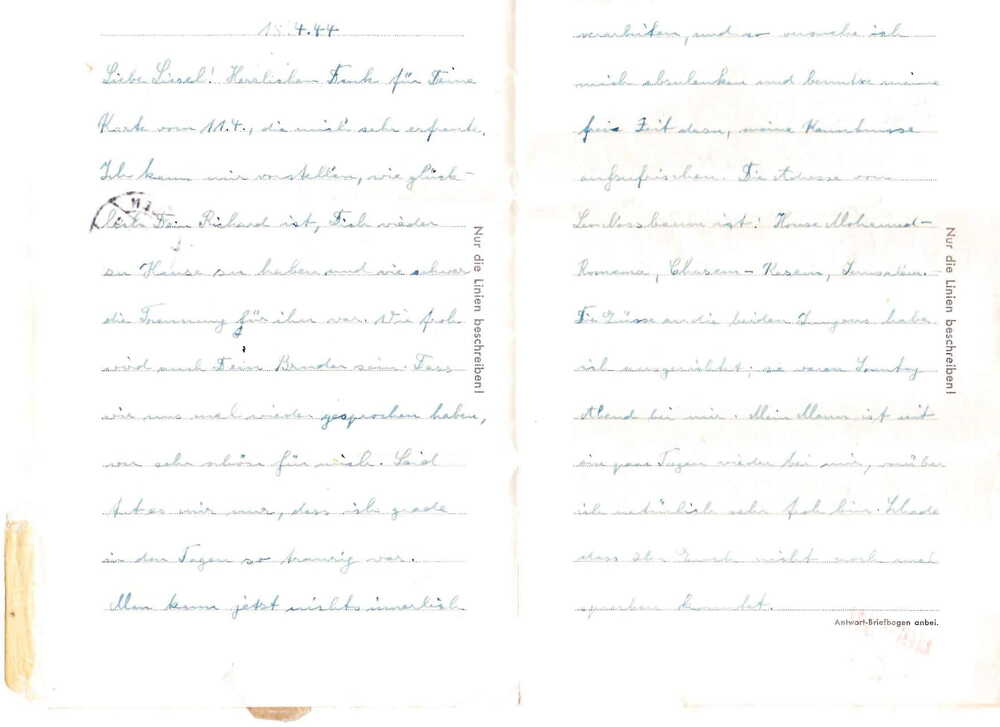 18.4.44
Liebe Liesel! Herzlichen Dank für Deine
Karte vom 11.4., die mich sehr erfreute.
Ich kann mir vorstellen, wie glück-
lich Dein Richard ist, Dich wieder
zu Hause zu haben und wie schwer
die Trennung für ihn war. Wie froh
wird auch Dein Bruder sein. Dass
wir uns mal wieder gesprochen haben,
war sehr schön für mich. Leid
tut es mir nur, dass ich grade
in den Tagen so traurig war.
Man kann jetzt nichts innerlich
Nur die Linien beschreiben!
verarbeiten, und so versuche ich
mich abzulenken und benutze meine
freie Zeit dazu, meine Kenntnisse
aufzufrischen. Die Adresse von
ist: House Mohamed-
Romema, Chasem-Kesem, Jerusalem.
Die Grüsse an die beiden Jungens habe
ich ausgerichtet; sie waren Sonntag
Abend bei mir. Mein Mann ist seit
ein paar Tagen wieder bei mir, worüber
ich natürlich sehr froh bin. Schade
dass Ihr Euch nicht noch mal
sprechen konntet.
Nur die Linien beschreiben!
Antwort-Briefbogen anbei.